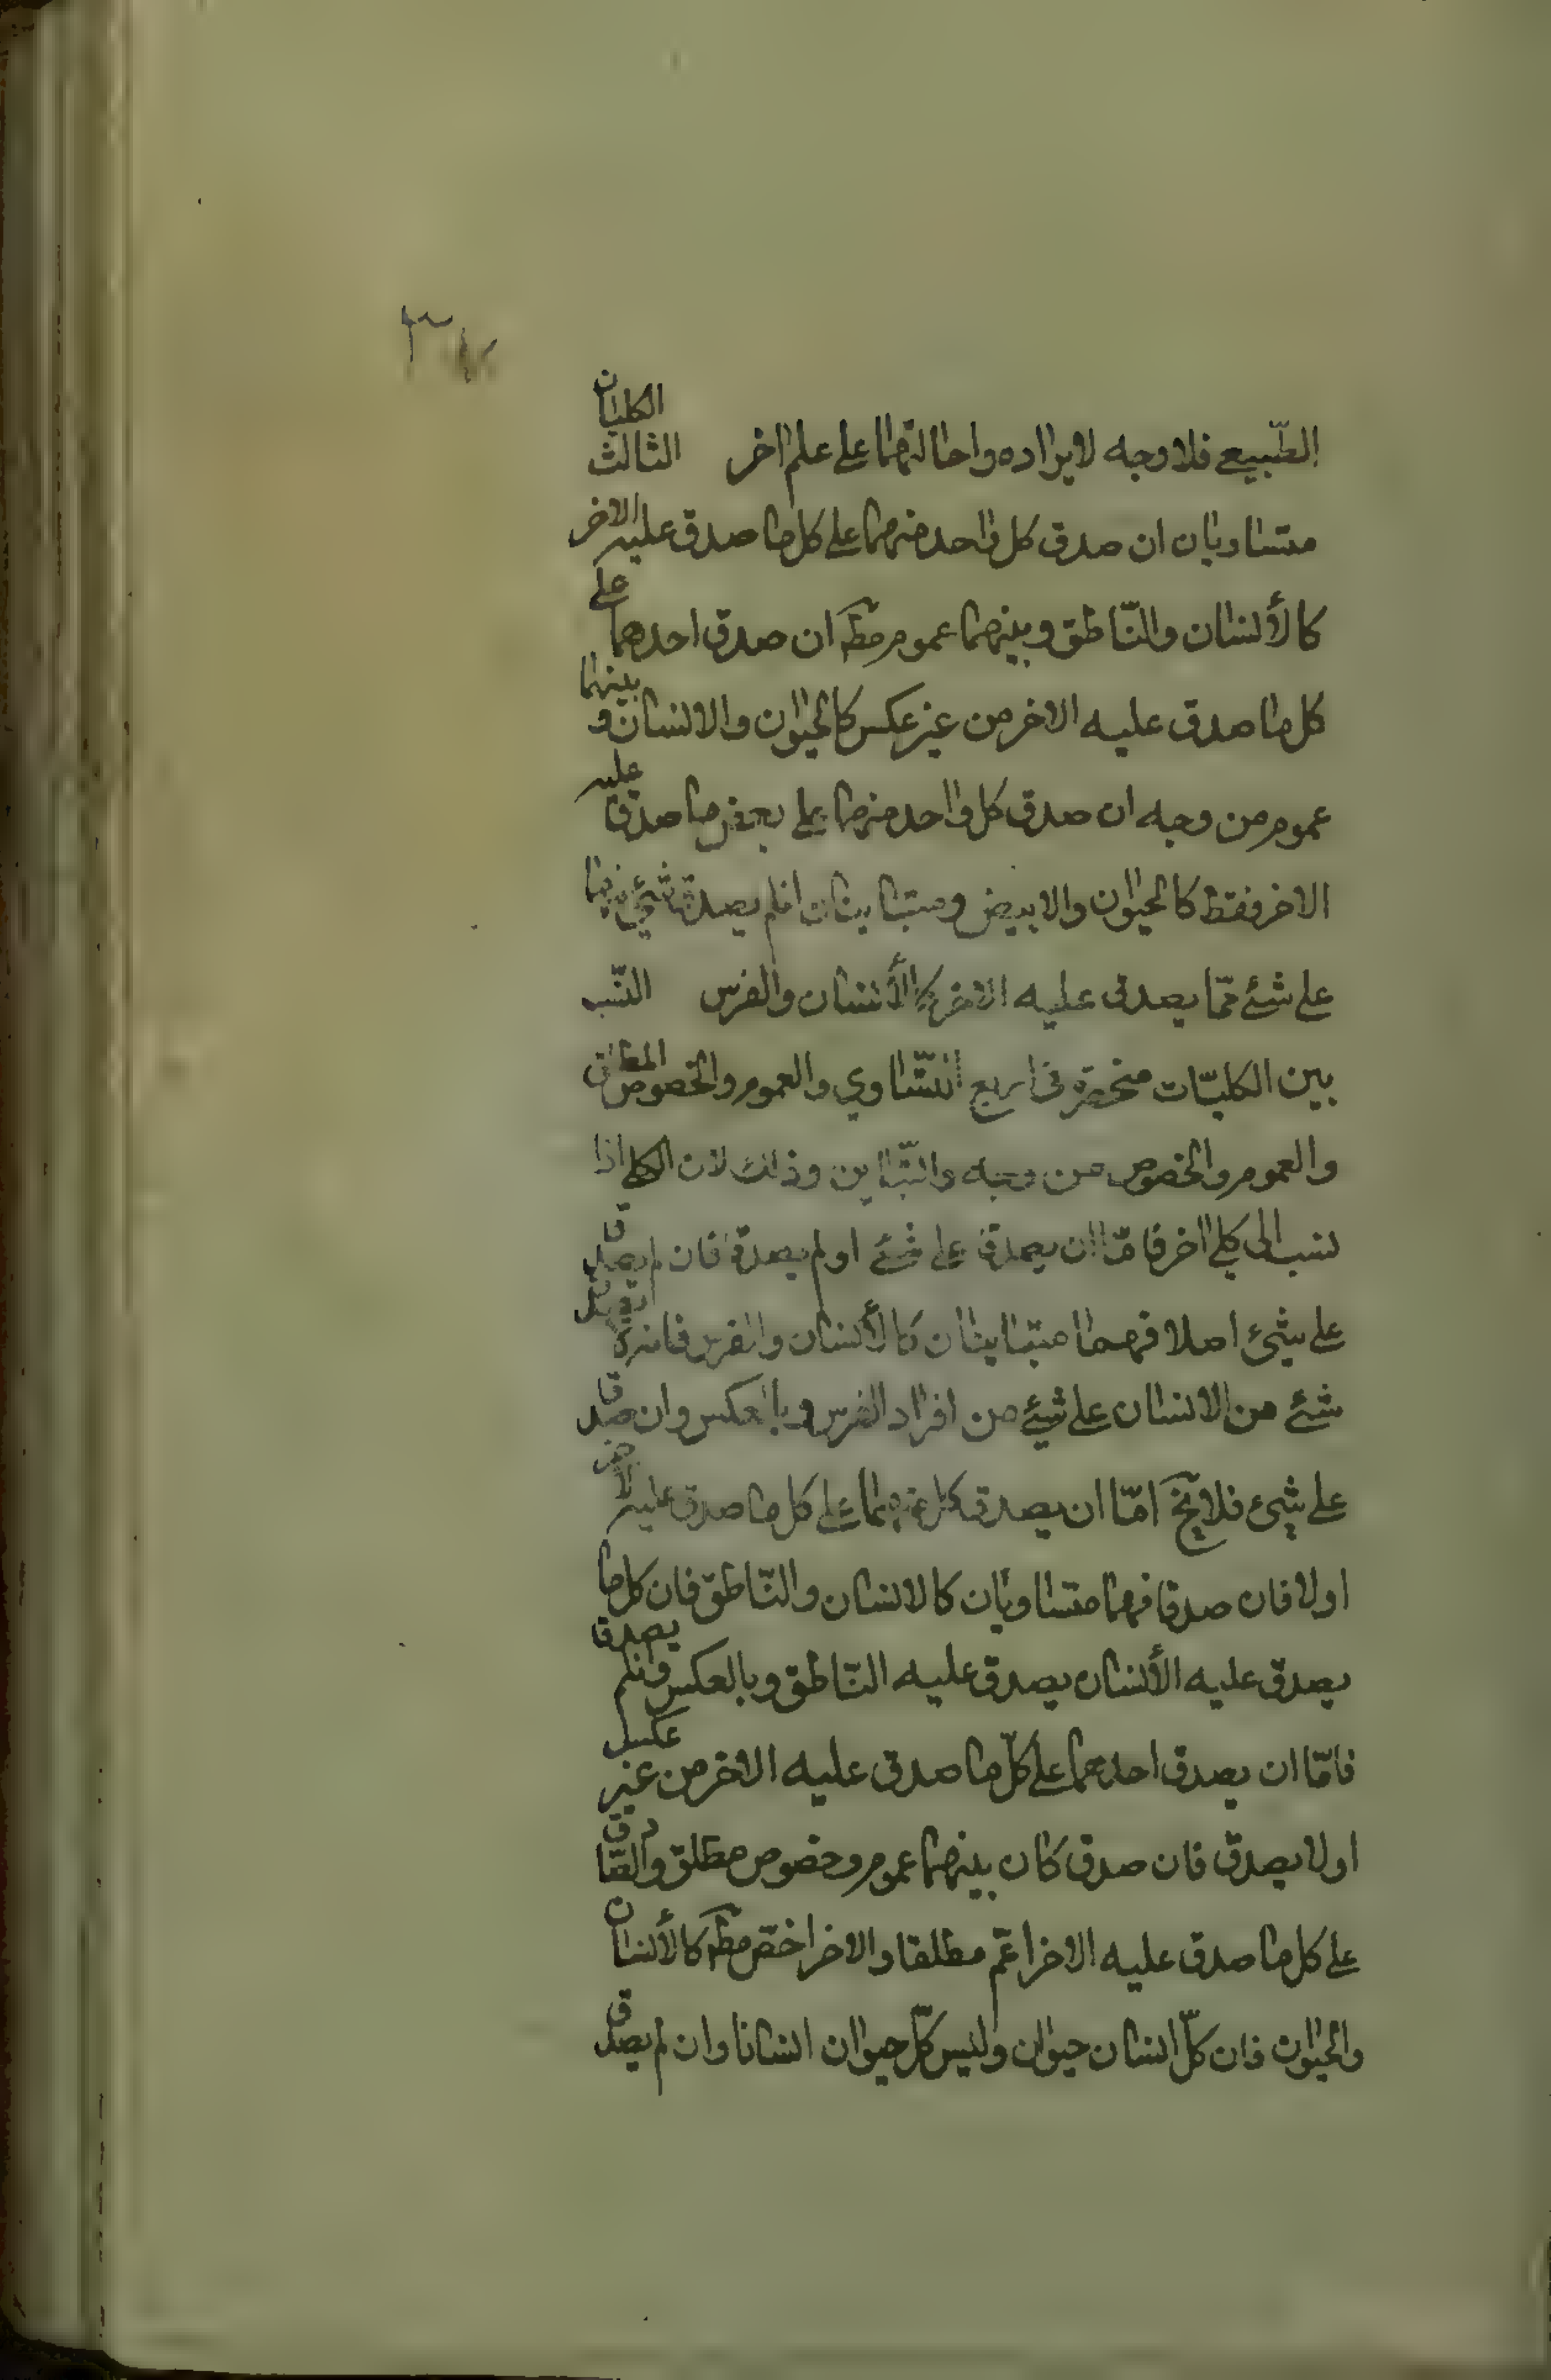 ٣٧
الطّبيعي فلا وجه لايراده واحالتهما على علم اخر الثالث الكليان
متساويان ان صدق كل واحد منهما على كل ما صدق عليه الاخر
كالأنسان والنّاطق وبينهما عموم مطـ ان صدق احدهما على
كل ما صدق عليه الاخر من غير عكس كالحيوان والانسان و بينهما
عموم من وجه ان صدق كل واحد منهما على بعض ما صدق عليه
الاخر فقط كالحيوان والابيض ومتباينان ان لم يصدق شئ منهما
على شئ ممّا يصدق عليه الاخر كالأنسان والفرس النّسب
بين الكليّات منحصرة في اربع التّساوي والعموم والخصوص المطلق
والعموم والخصوص من وجه والتّباين وذلك لان الكلي اذا
نسب الى كلي اخر فامّا ان يصدقا على شئ او لم يصدقا فان لم يصدقا
على شئ اصلا فهما متباينان كالأنسان والفرس فانه لا يصدق
شئ من الانسان على شئ من افراد الفرس وبالعكس وان صدقا
على شئ فلا يخ امّا ان يصدق كل منهما على كل ما صدق عليه الاخر
اولا فان صدقا فهما متساويان كالانسان والنّاطق فان كل ما
يصدق عليه الأنسان يصدق عليه النّاطق وبالعكس وان لم يصدق
فامّا ان يصدق احدهما على كلّ ما صدق عليه الاخر من غير عكس
اولا يصدق فان صدق كان بينهما عموم وخصوص مطلق والصّادق
على كل ما صدق عليه الاخر اعمّ مطلقا والاخر اخصّ مطـ كالأنسان
والحيوان فان كلّ انسان حيوان وليس كلّ حيوان انسانا وان لم يصدق